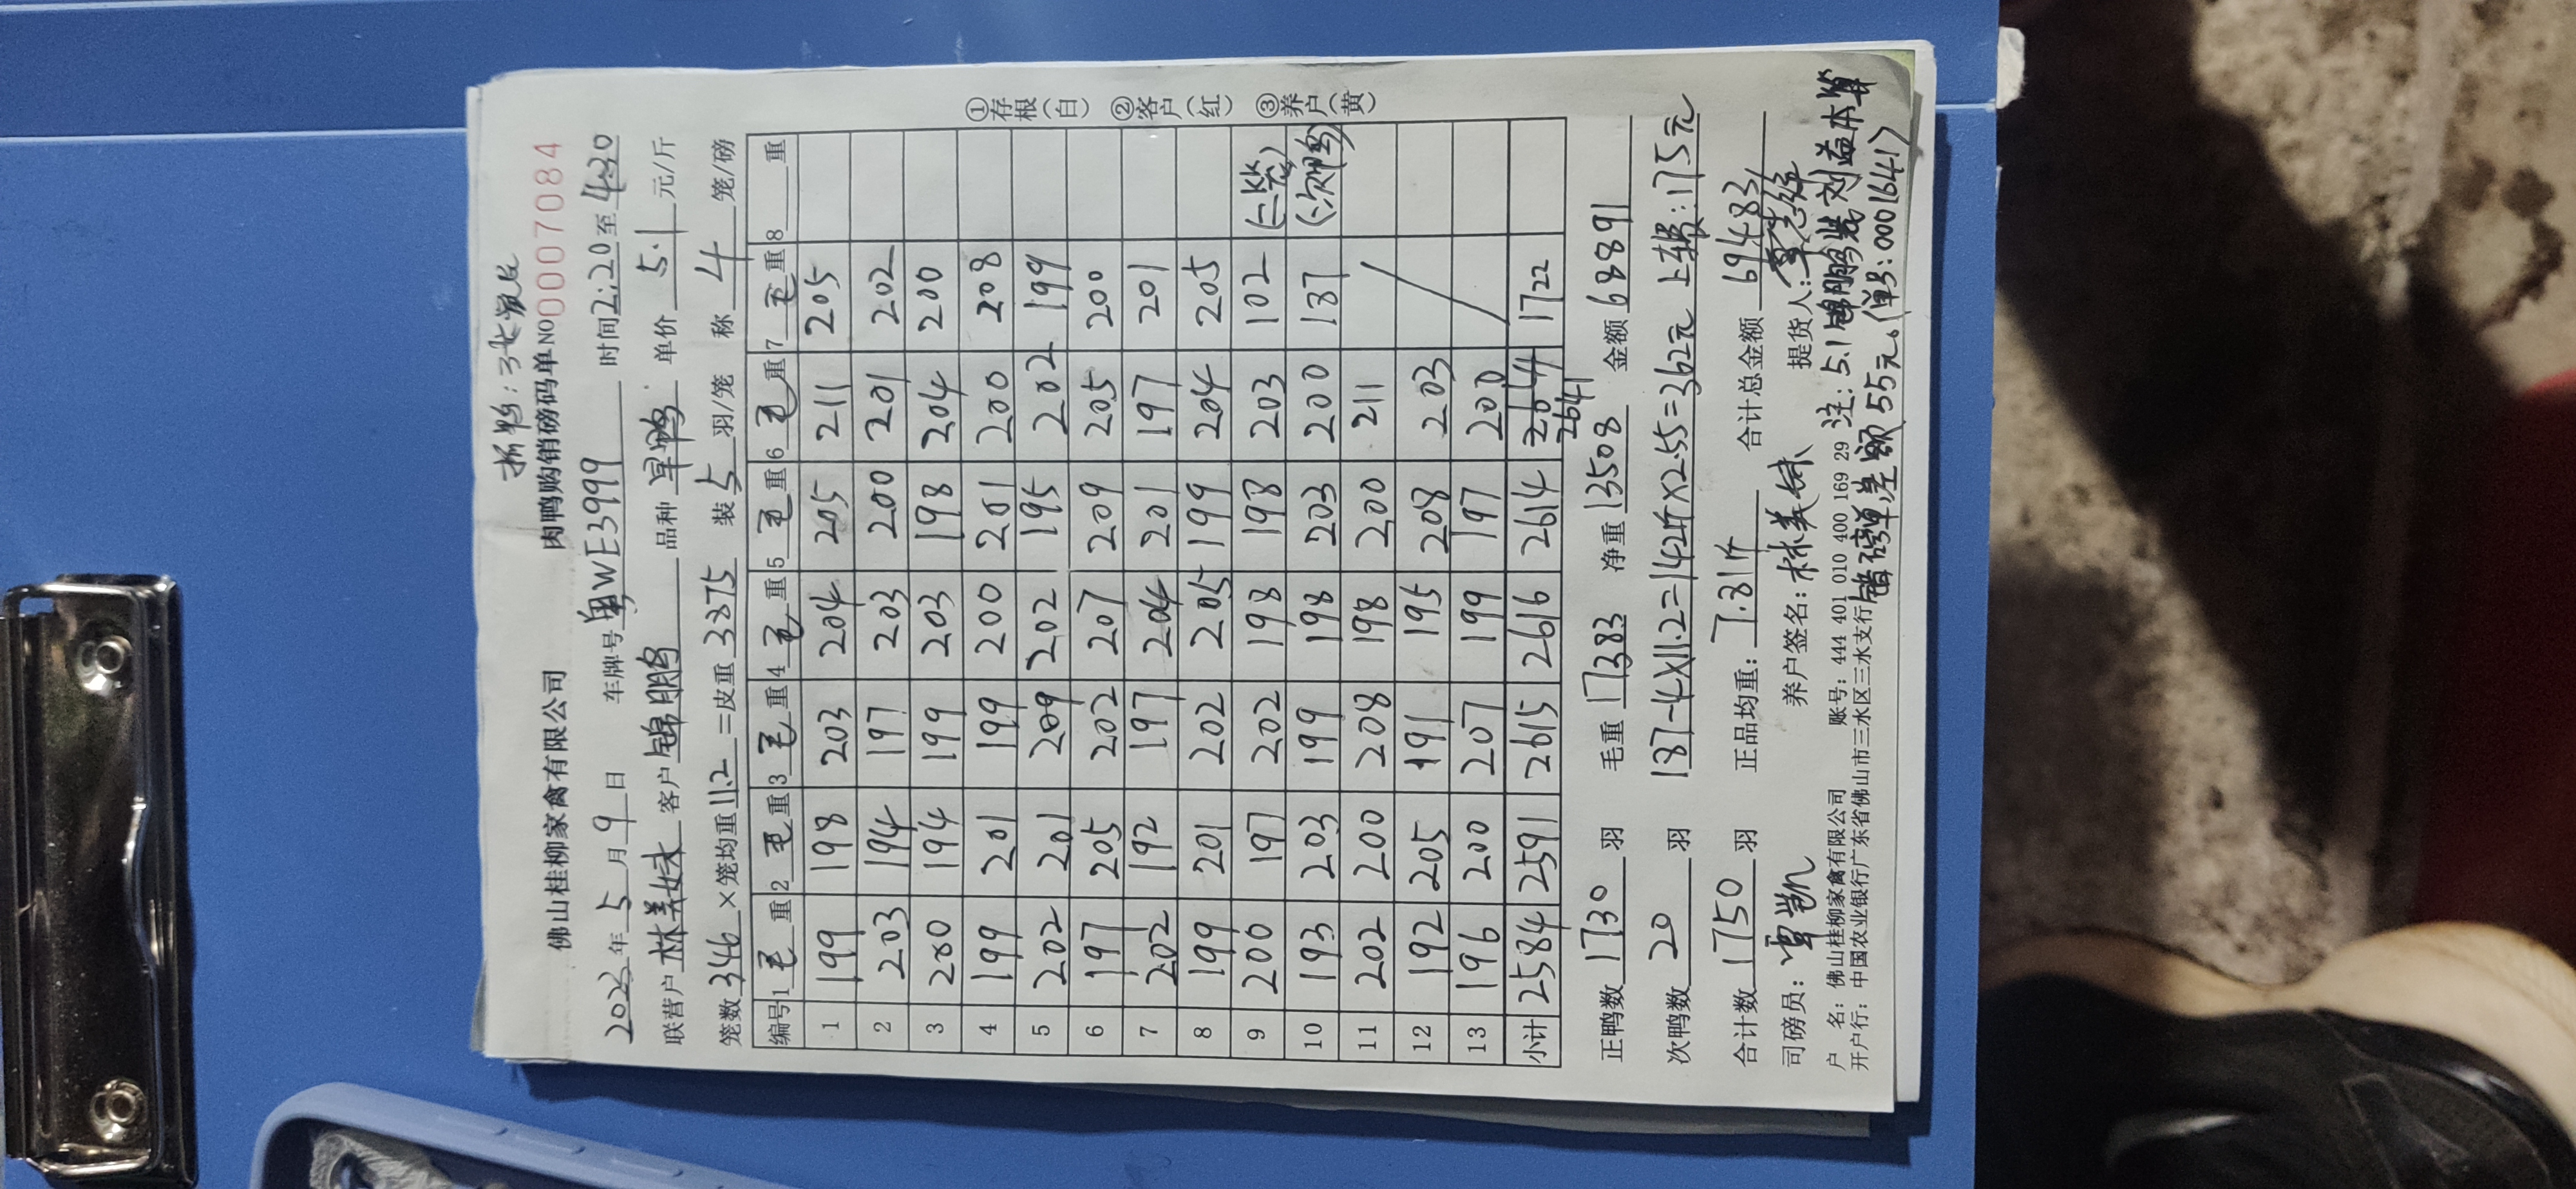 抓鸭：
佛山桂柳家禽有限公司 肉鸭购销磅码单 NO 0007084
2023年5月9日 车牌号粤WE3999 时间2:20至4:30
联营户林美妹 客户锦鹏 品种旱鸭 单价5.1元/斤
笼数346×笼均重11.2=皮重3875 装5羽/笼 称4笼/磅
编号 1毛重 2毛重 3毛重 4毛重 5毛重 6毛重 7毛重 8 重
1 199 198 203 204 205 211 205
2 203 194 197 203 200 201 202
3 200 194 199 203 198 204 200
4 199 201 199 200 201 200 208
5 202 201 209 202 195 202 199
6 197 205 202 207 209 205 200
7 202 192 197 204 201 197 201
8 199 201 202 205 199 204 205
9 200 197 202 198 198 203 102 (二笼)
10 193 203 199 198 203 200 187 (次鸭)
11 202 200 208 198 200 211
12 192 205 191 195 208 203
13 196 200 207 199 197 200
小计 2584 2591 2615 2616 2614 2641 1722
①存根(白) ②客户(红) ③养户(黄)
正鸭数1730羽 毛重17383 净重13508 金额68891
次鸭数20羽 187-4×11.2=142斤×2.55=362元 上楼:175元
合计数1750羽 正品均重：7.81斤 合计总金额69483
司磅员：覃凯 养户签名：林美妹 提货人：
户 名：佛山桂柳家禽有限公司 账号：444 401 010 400 169 29
开户行：中国农业银行广东省佛山市三水区三水支行
注：5.1锦鹏装刘益本算
错磅单,差额55元。(单号：0001641)